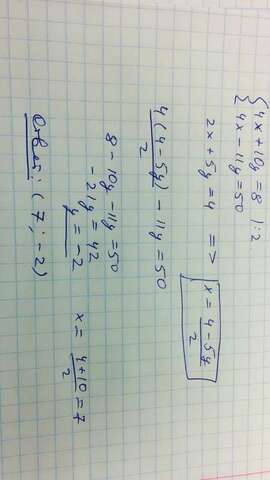 {4x+10y=8 |:2
{4x-11y=50
2x+5y=4 => x = (4-5y)/2
4(4-5y)/2 - 11y=50
8-10y-11y=50
-21y=42
y=-2 x = (4+10)/2 = 7
Ответ: (7; -2)